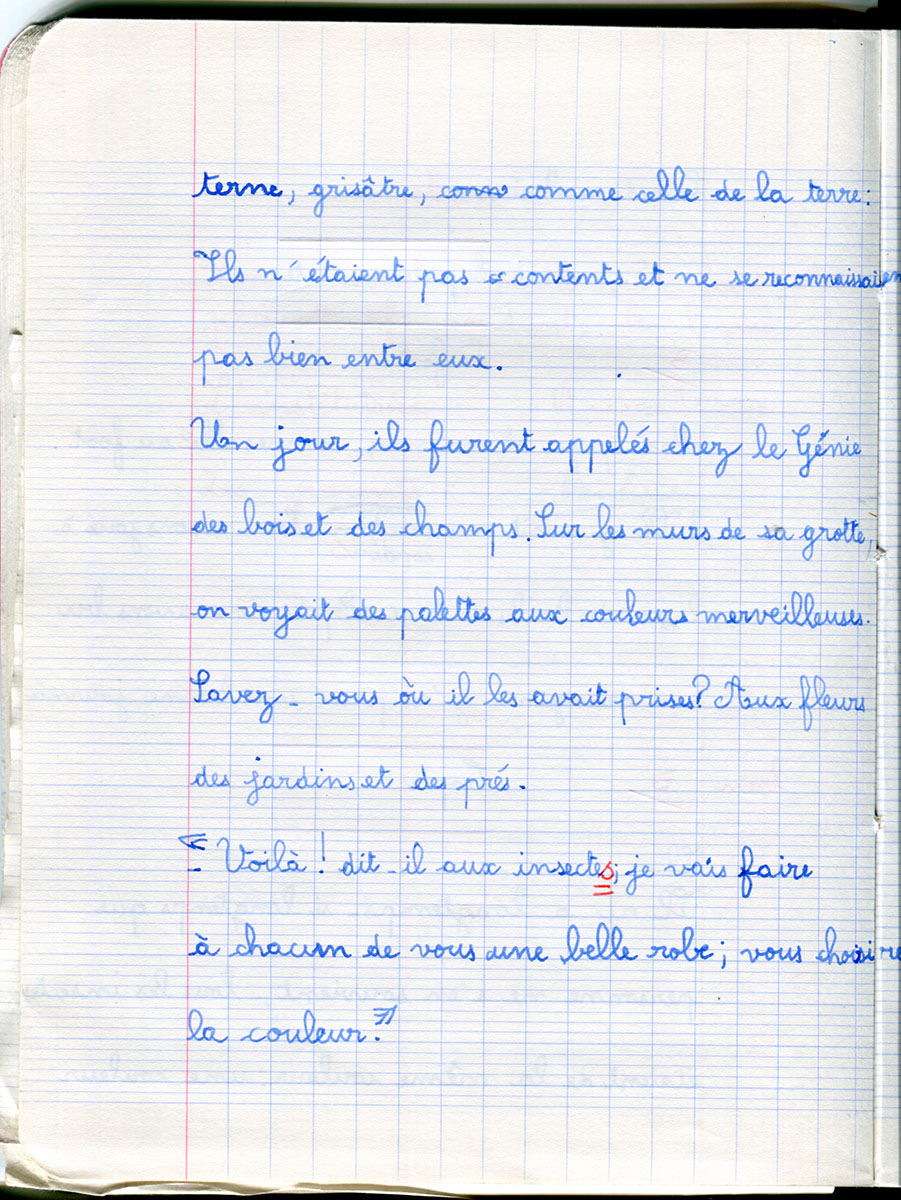 terne, grisâtre, comm comme celle de la terre :
Ils n'étaient pas c contents et ne se reconnaissaien
pas bien entre eux.
Un jour, ils furent appelés chez le Génie
des bois et des champs. Sur les murs de sa grotte,
on voyait des palettes aux couleurs merveilleuses.
Savez-vous où il les avait prises? Aux fleurs
des jardins et des prés.
« - Voilà ! dit-il aux insectes; je vais faire
à chacun de vous une belle robe; vous choisire
la couleur. »